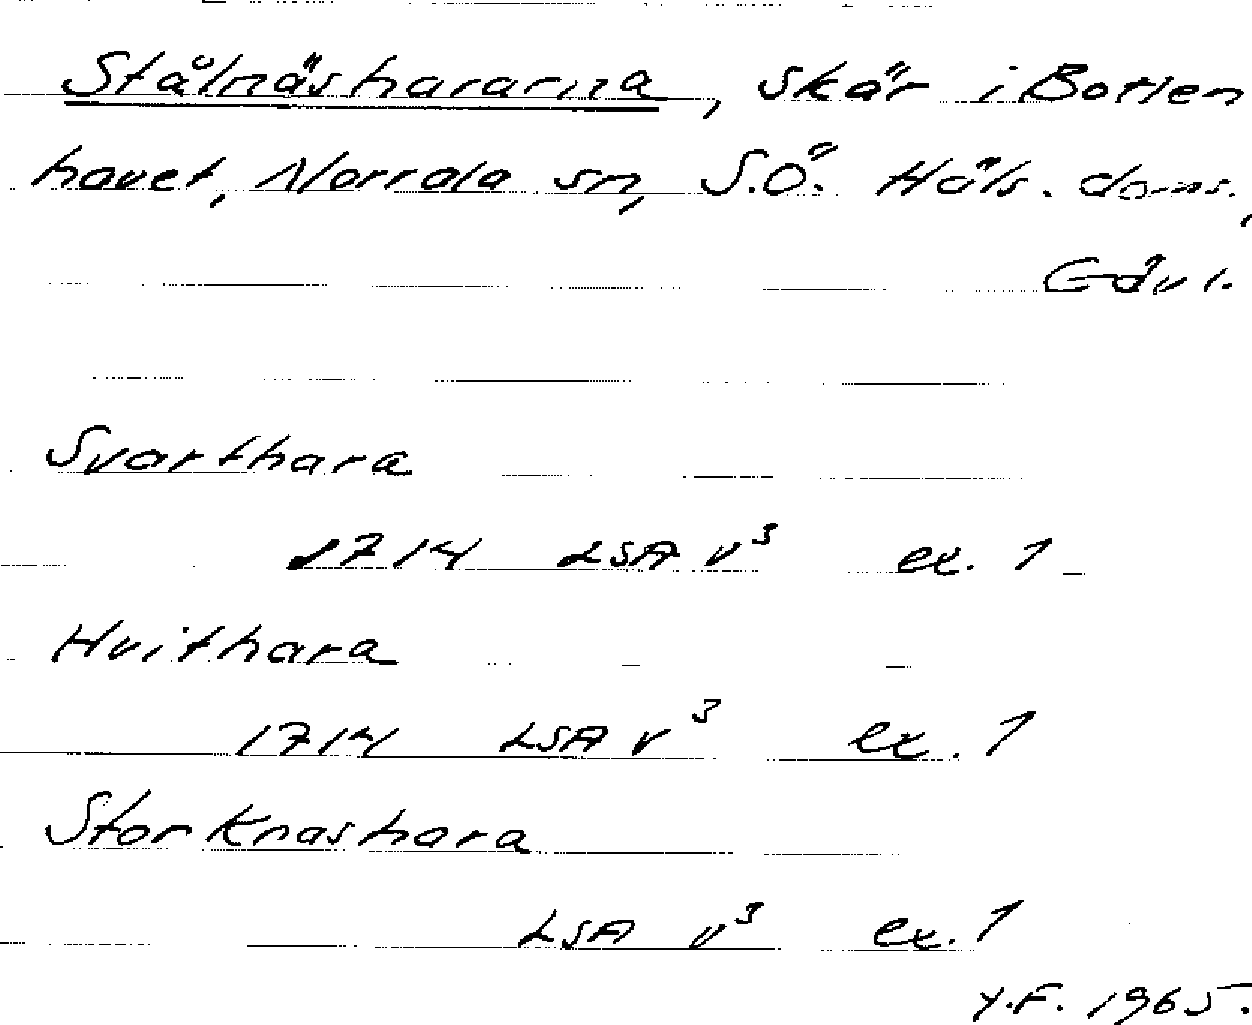 Stålnäshararna, skär i Botten
havet, Norrala sn, S.Ö. Häls. doms.,
Gävl.
Svarthara
1714 LSA v³ ex. 1
Hvithara
1714 LSA v³ ex. 1
Stor Knashara
LSA v³ ex. 1
Y.F. 1965.